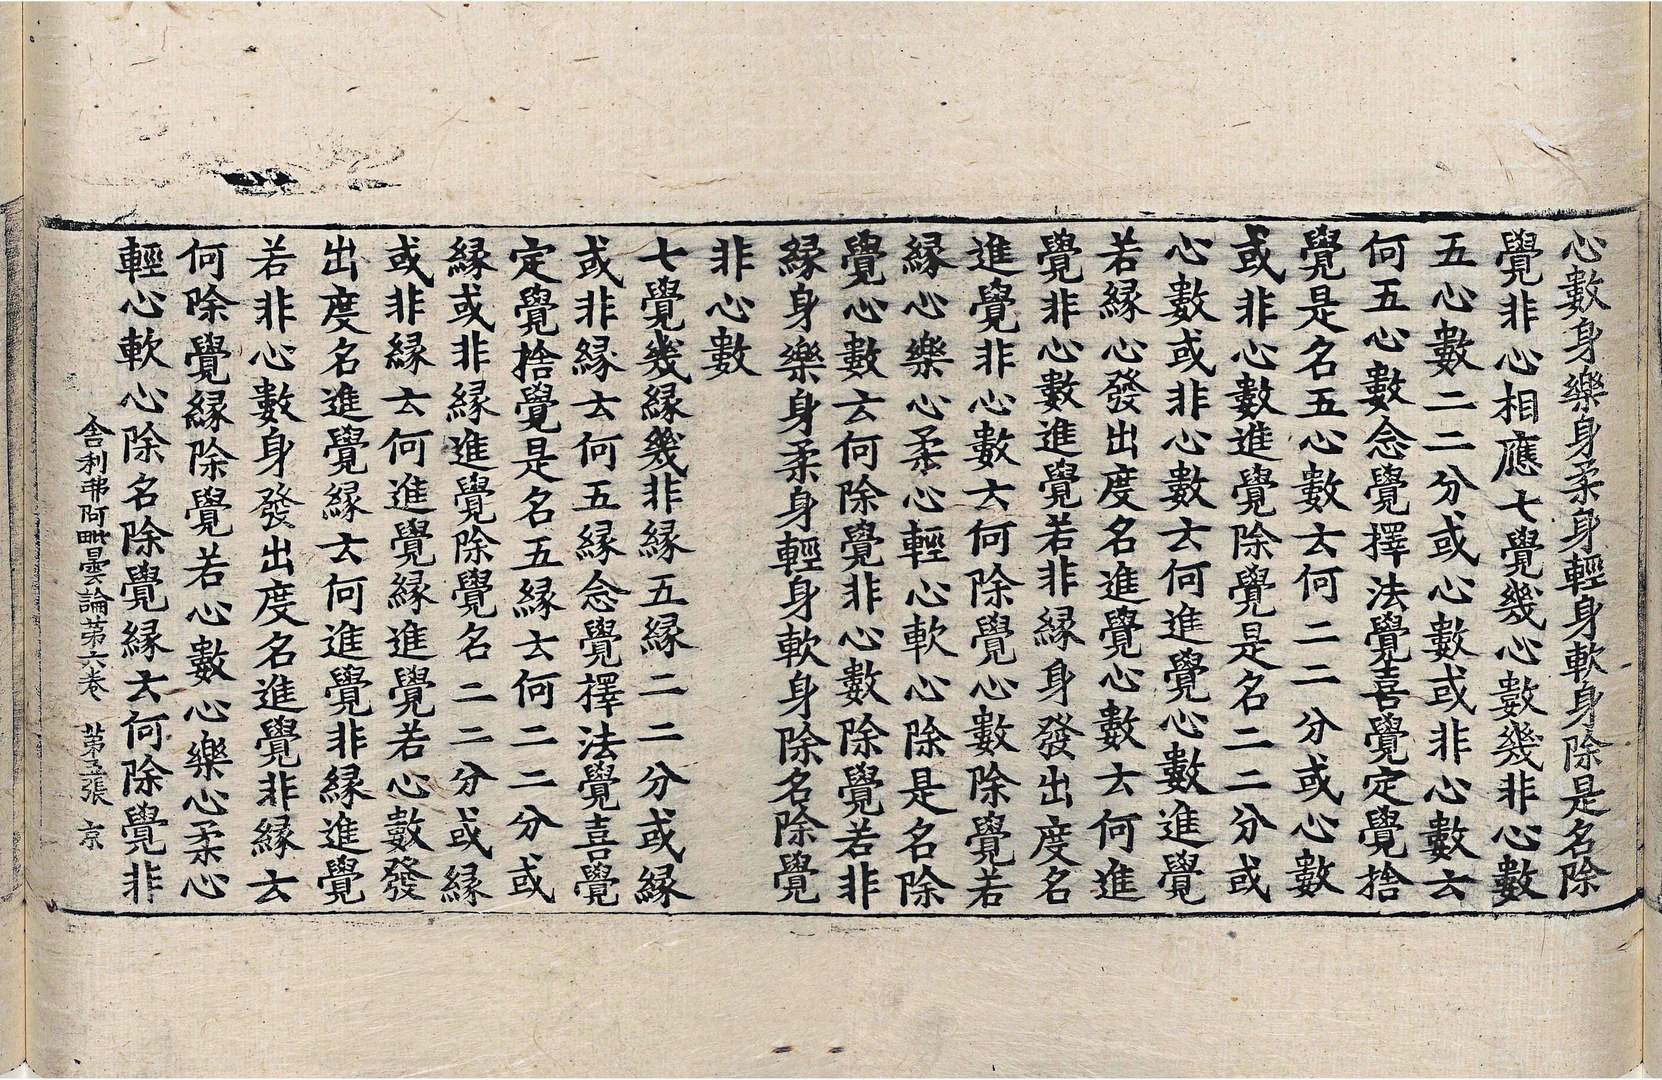 心數身樂身柔身輕身軟身除是名除
覺非心相應七覺幾心數幾非心數
五心數二二分或心數或非心數云
何五心數念覺擇法覺喜覺定覺捨
覺是名五心數云何二二分或心數
或非心數進覺除覺是名二二分或
心數或非心數云何進覺心數進覺
若緣心發出度名進覺心數云何進
覺非心數進覺若非緣身發出度名
進覺非心數云何除覺心數除覺若
緣心樂心柔心輕心軟心除是名除
覺心數云何除覺非心數除覺若非
緣身樂身柔身輕身軟身除名除覺
非心數
七覺幾緣幾非緣五緣二二分或緣
或非緣云何五緣念覺擇法覺喜覺
定覺捨覺是名五緣云何二二分或
緣或非緣進覺除覺名二二分或緣
或非緣云何進覺緣進覺若心數發
出度名進覺緣云何進覺非緣進覺
若非心數身發出度名進覺非緣云
何除覺緣除覺若心數心樂心柔心
輕心軟心除名除覺緣云何除覺非
舍利弗阿毗曇論第六卷 第五張 京